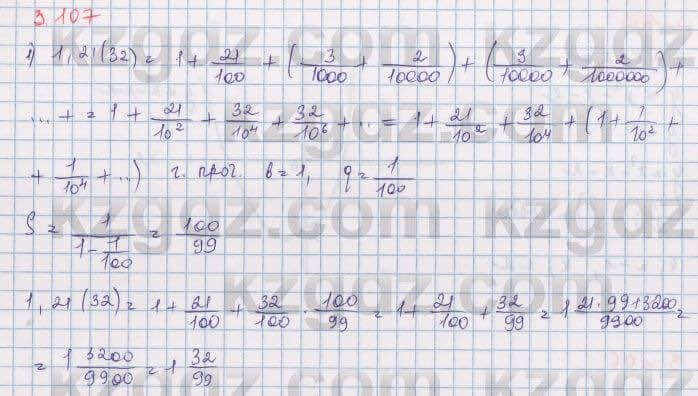 3.107
1) 1,21(32) = 1 + 21/100 + (3/1000 + 2/10000) + (3/10000 + 2/1000000) +
... + = 1 + 21/10² + 32/10⁴ + 32/10⁶ + .. = 1 + 21/10² + 32/10⁴ + (1 + 1/10² +
+ 1/10⁴ + ..) г. прог. b = 1, q = 1/100
S = 1/(1 - 1/100) = 100/99
1,21(32) = 1 + 21/100 + 32/100 · 100/99 = 1 + 21/100 + 32/99 = 1 21·99+3200/9900 =
= 1 3200/9900 = 1 32/99
kzgdz.com